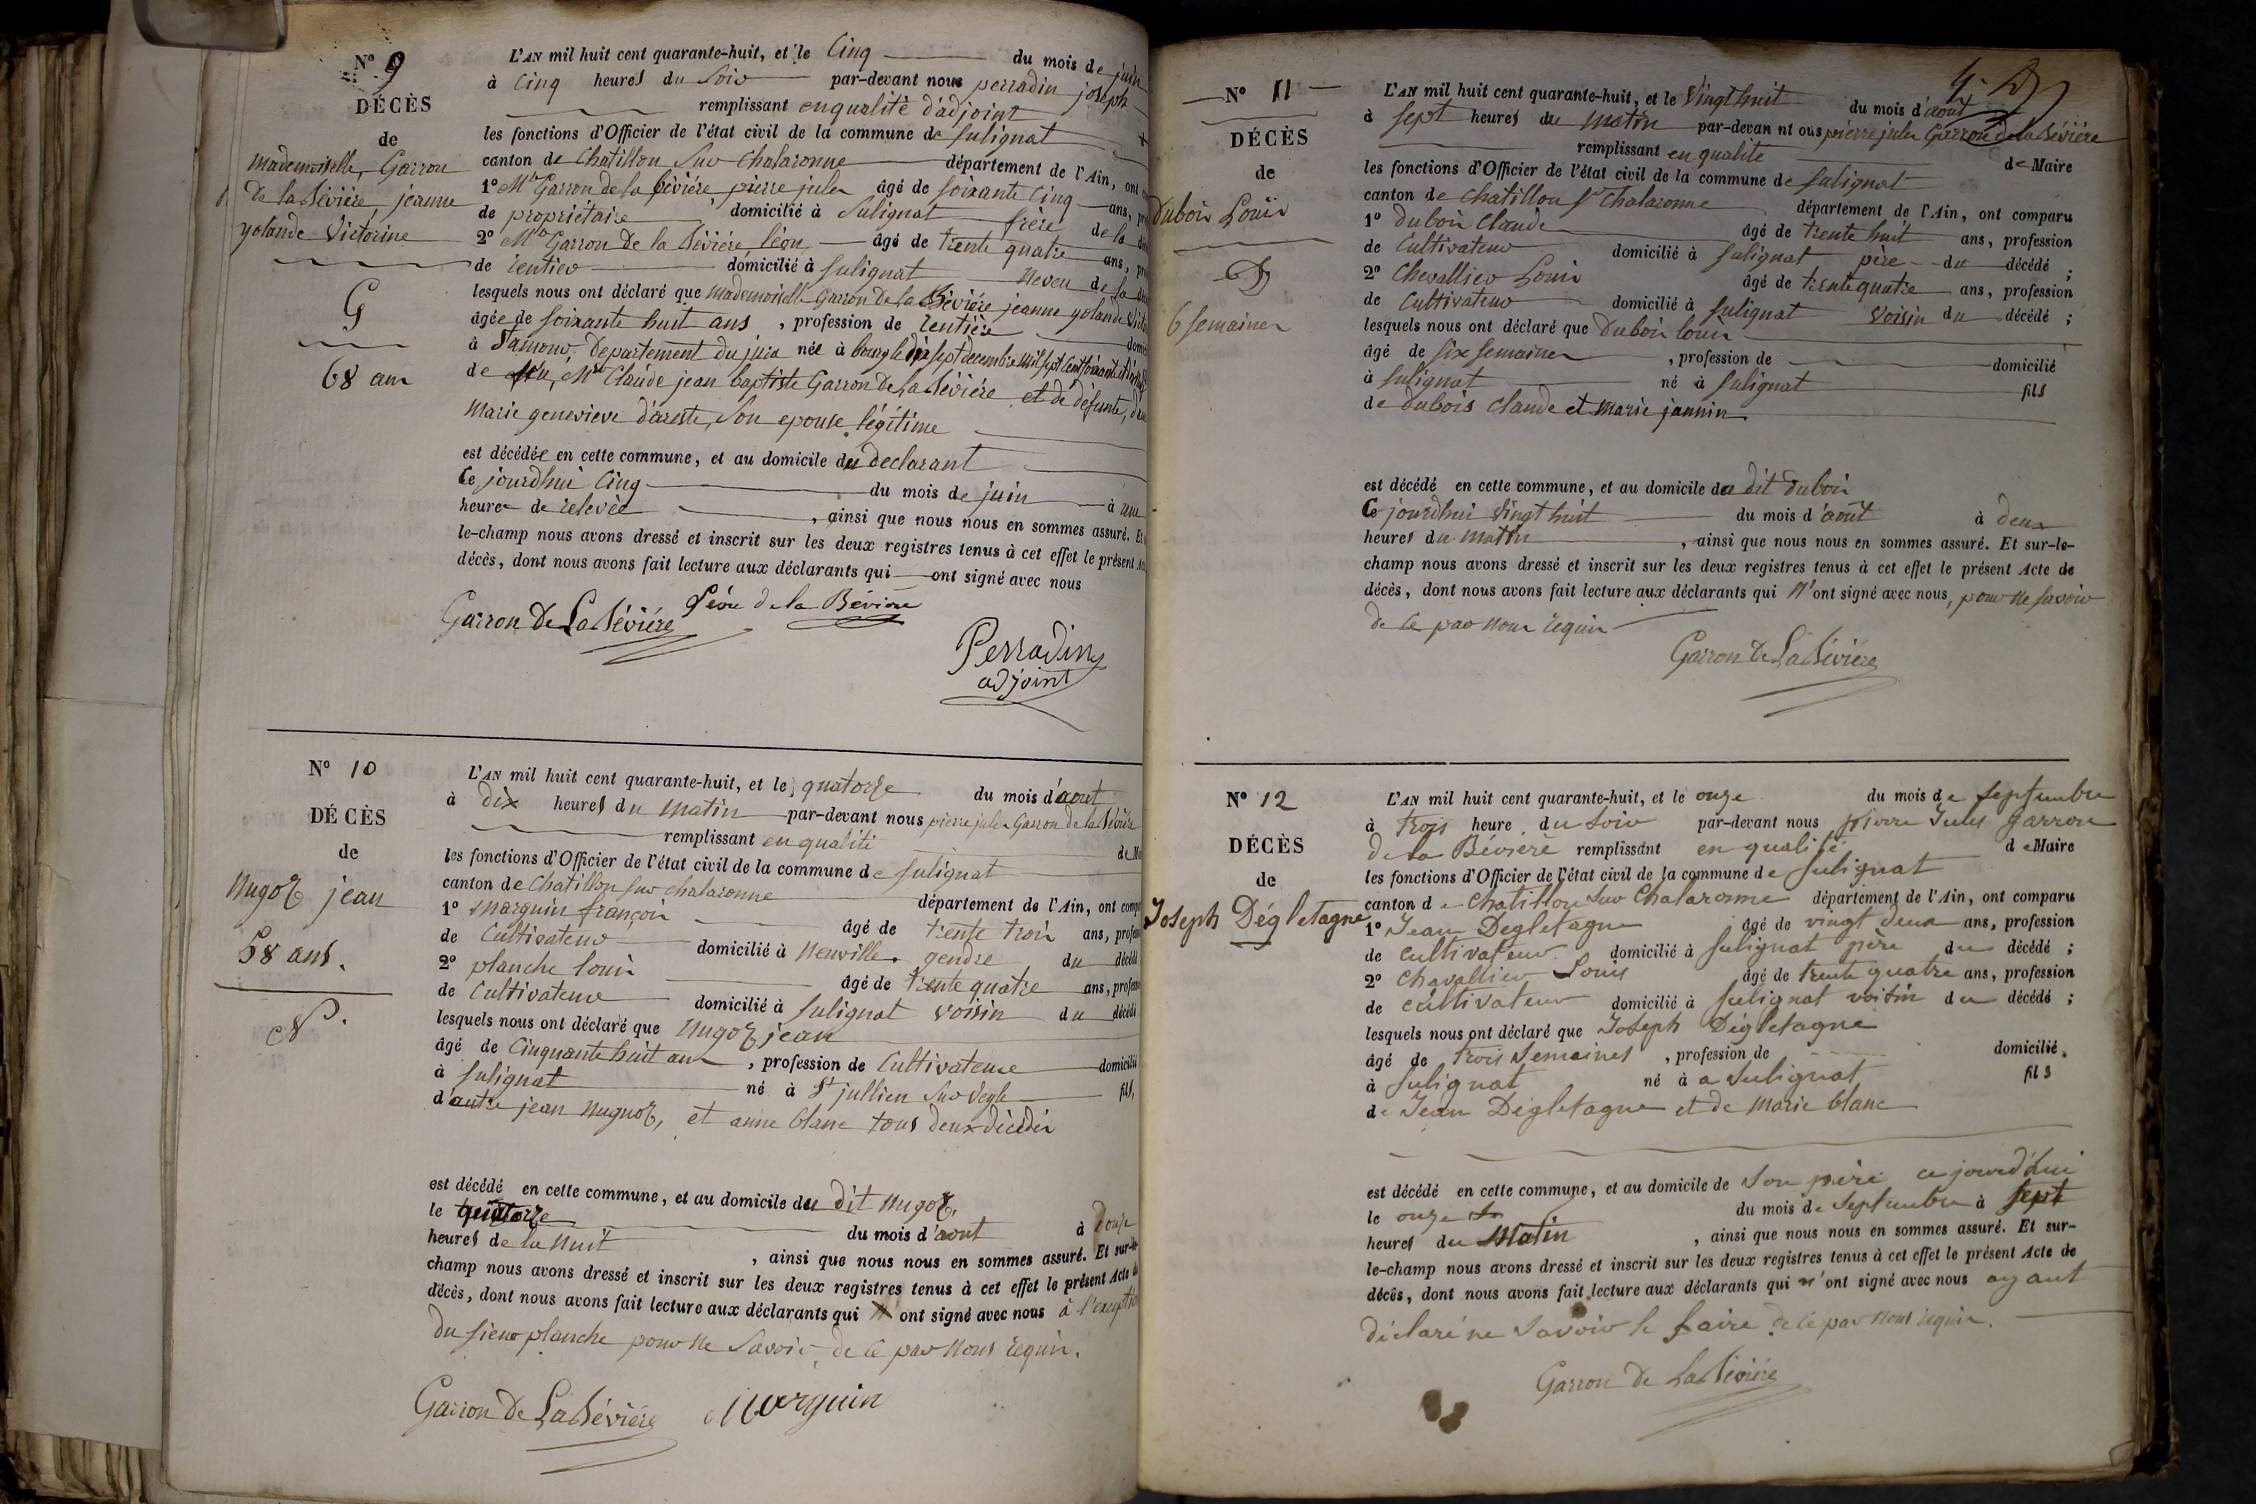 N° 9
DÉCÈS
de
Mademoiselle Garron
de la Bévière jeanne
yolande Victorine
G
68 ans
L'AN mil huit cent quarante-huit, et le Cinq du mois de juin
à Cinq heures du Soir par-devant nous perradin joseph
remplissant en qualité d'adjoint
les fonctions d'Officier de l'état civil de la commune de Sulignat
canton de Chatillon Sur Chalaronne département de l'Ain, ont
1° Mr Garron de la Bévière pierre jules âgé de soixante Cinq ans,
de propriétaire domicilié à Sulignat frère de la
2° Mr Garron De la Bévière léon âgé de trente quatre ans,
de rentier domicilié à Sulignat Neveu de la
lesquels nous ont déclaré que Mademoiselle Garron De la Bévière jeanne yolande
âgée de soixante huit ans, profession de rentière
à département du jura née à bourg le dix sept decembre mil sept cent
de Mr Claude jean baptiste Garron De la Bévière et de défunte,
Marie genevieve Son epouse légitime
est décédée en cette commune, et au domicile du declarant
Ce jourdhui Cinq du mois de juin à une
heure de relevée, ainsi que nous nous en sommes assuré. Et
le-champ nous avons dressé et inscrit sur les deux registres tenus à cet effet le présent
décès, dont nous avons fait lecture aux déclarants qui ont signé avec nous
Garron De La Bévière Léon de la Bévière
Perradin
adjoint
N° 10
DÉCÈS
de
Nugoz jean
58 ans.
N.
L'AN mil huit cent quarante-huit, et le quatorze du mois d'aout
à dix heures du matin par-devant nous pierre jules Garron de la Bévière
remplissant en qualité de
les fonctions d'Officier de l'état civil de la commune de Sulignat
canton de Chatillon Sur chalaronne département de l'Ain, ont
1° Marguin françois âgé de trente trois ans,
de Cultivateur domicilié à Neuville gendre du décédé
2° planche louis âgé de trente quatre ans,
de Cultivateur domicilié à Sulignat voisin du décédé
lesquels nous ont déclaré que Nugoz jean
âgé de Cinquante huit ans, profession de Cultivateur domicilié
à Sulignat né à St jullien Sur Veyle fils,
d'autre jean Nugnoz, et anne blanc tous deux décédés
est décédé en cette commune, et au domicile du dit Nugoz,
le quatorze du mois d'aout à Douze
heures de la Nuit, ainsi que nous nous en sommes assuré. Et sur-le-
champ nous avons dressé et inscrit sur les deux registres tenus à cet effet le présent Acte de
décès, dont nous avons fait lecture aux déclarants qui N'ont signé avec nous à l'exception
du sieur planche pour ne Savoir, de ce par Nous requis.
Garron De La Bévière Marguin
N° 11
DÉCÈS
de
Dubois Louis
D
6 semaines
L'AN mil huit cent quarante-huit, et le Vingt huit du mois d'aout
à Sept heures du Matin par-devant nous pierre jules Garron de la Bévière
remplissant en qualité de Maire
les fonctions d'Officier de l'état civil de la commune de Sulignat
canton de Chatillon Sr Chalaronne département de l'Ain, ont comparu
1° Dubois Claude âgé de trente huit ans, profession
de Cultivateur domicilié à Sulignat père du décédé ;
2° Chevallier Louis âgé de trente quatre ans, profession
de Cultivateur domicilié à Sulignat Voisin du décédé ;
lesquels nous ont déclaré que Dubois louis
âgé de Six semaines, profession de domicilié
à Sulignat né à Sulignat fils
de Dubois Claude et Marie jannin
est décédé en cette commune, et au domicile du dit Dubois
Ce jourdhui Vingt huit du mois d'aout à deux
heures du Matin, ainsi que nous nous en sommes assuré. Et sur-le-
champ nous avons dressé et inscrit sur les deux registres tenus à cet effet le présent Acte de
décès, dont nous avons fait lecture aux déclarants qui N'ont signé avec nous, pour ne Savoir
de ce par Nous requis
Garron De La Bévière
N° 12
DÉCÈS
de
Joseph Dégletagne
L'AN mil huit cent quarante-huit, et le onze du mois de Septembre
à trois heure du Soir par-devant nous pierre Jules Garron
De la Bévière remplissant en qualité de Maire
les fonctions d'Officier de l'état civil de la commune de Sulignat
canton de Chatillon Sur Chalaronne département de l'Ain, ont comparu
1° Jean Degletagne âgé de vingt deux ans, profession
de cultivateur domicilié à Sulignat père du décédé ;
2° Chavallier Louis âgé de trente quatre ans, profession
de cultivateur domicilié à Sulignat voisin du décédé ;
lesquels nous ont déclaré que Joseph Dégletagne
âgé de trois Semaines, profession de domicilié
à Sulignat né à a Sulignat fils
de Jean Dégletagne et de Marie blanc
est décédé en cette commune, et au domicile de Son père ce jourd'hui
le onze du mois de Septembre à Sept
heures du Matin, ainsi que nous nous en sommes assuré. Et sur-
le-champ nous avons dressé et inscrit sur les deux registres tenus à cet effet le présent Acte de
décès, dont nous avons fait lecture aux déclarants qui n'ont signé avec nous ayant
déclaré ne Savoir le faire de ce par Nous requis.
Garron De La Bévière